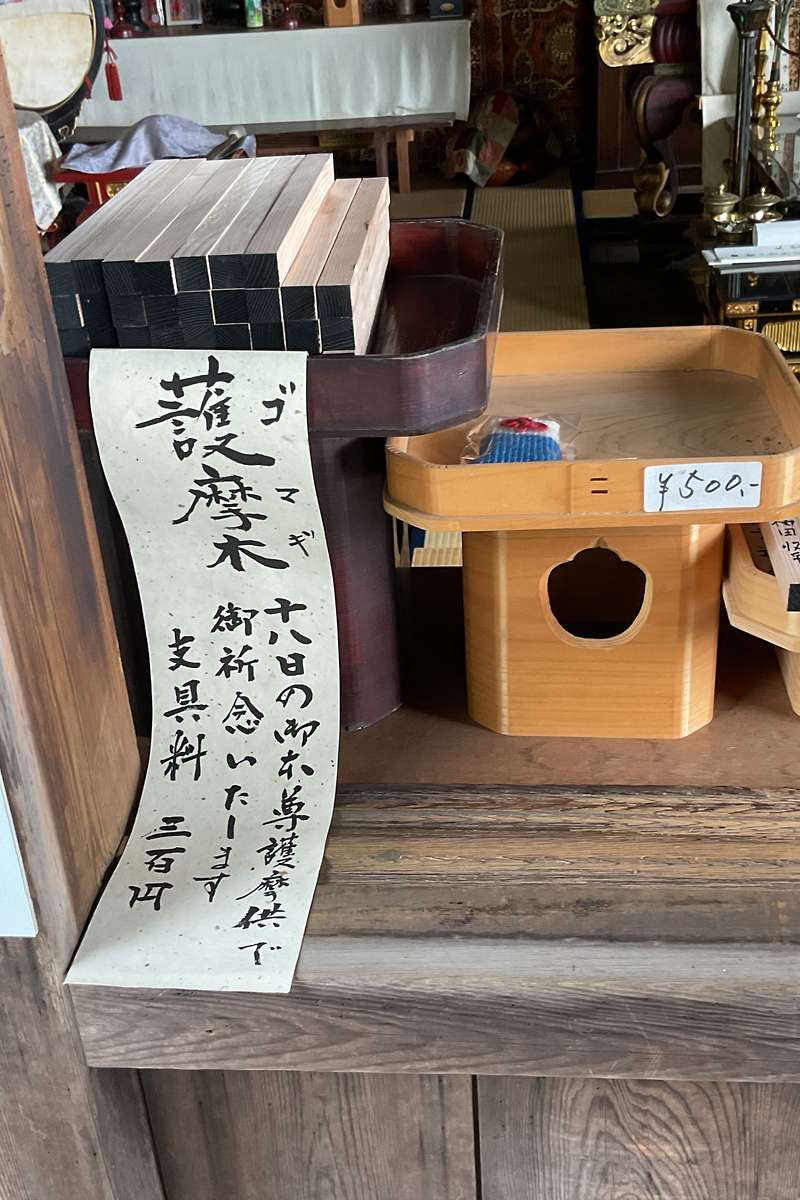 護摩木
ゴマギ
十八日の御本尊護摩供で
御祈念いたします
支具料 三百円
¥500.-